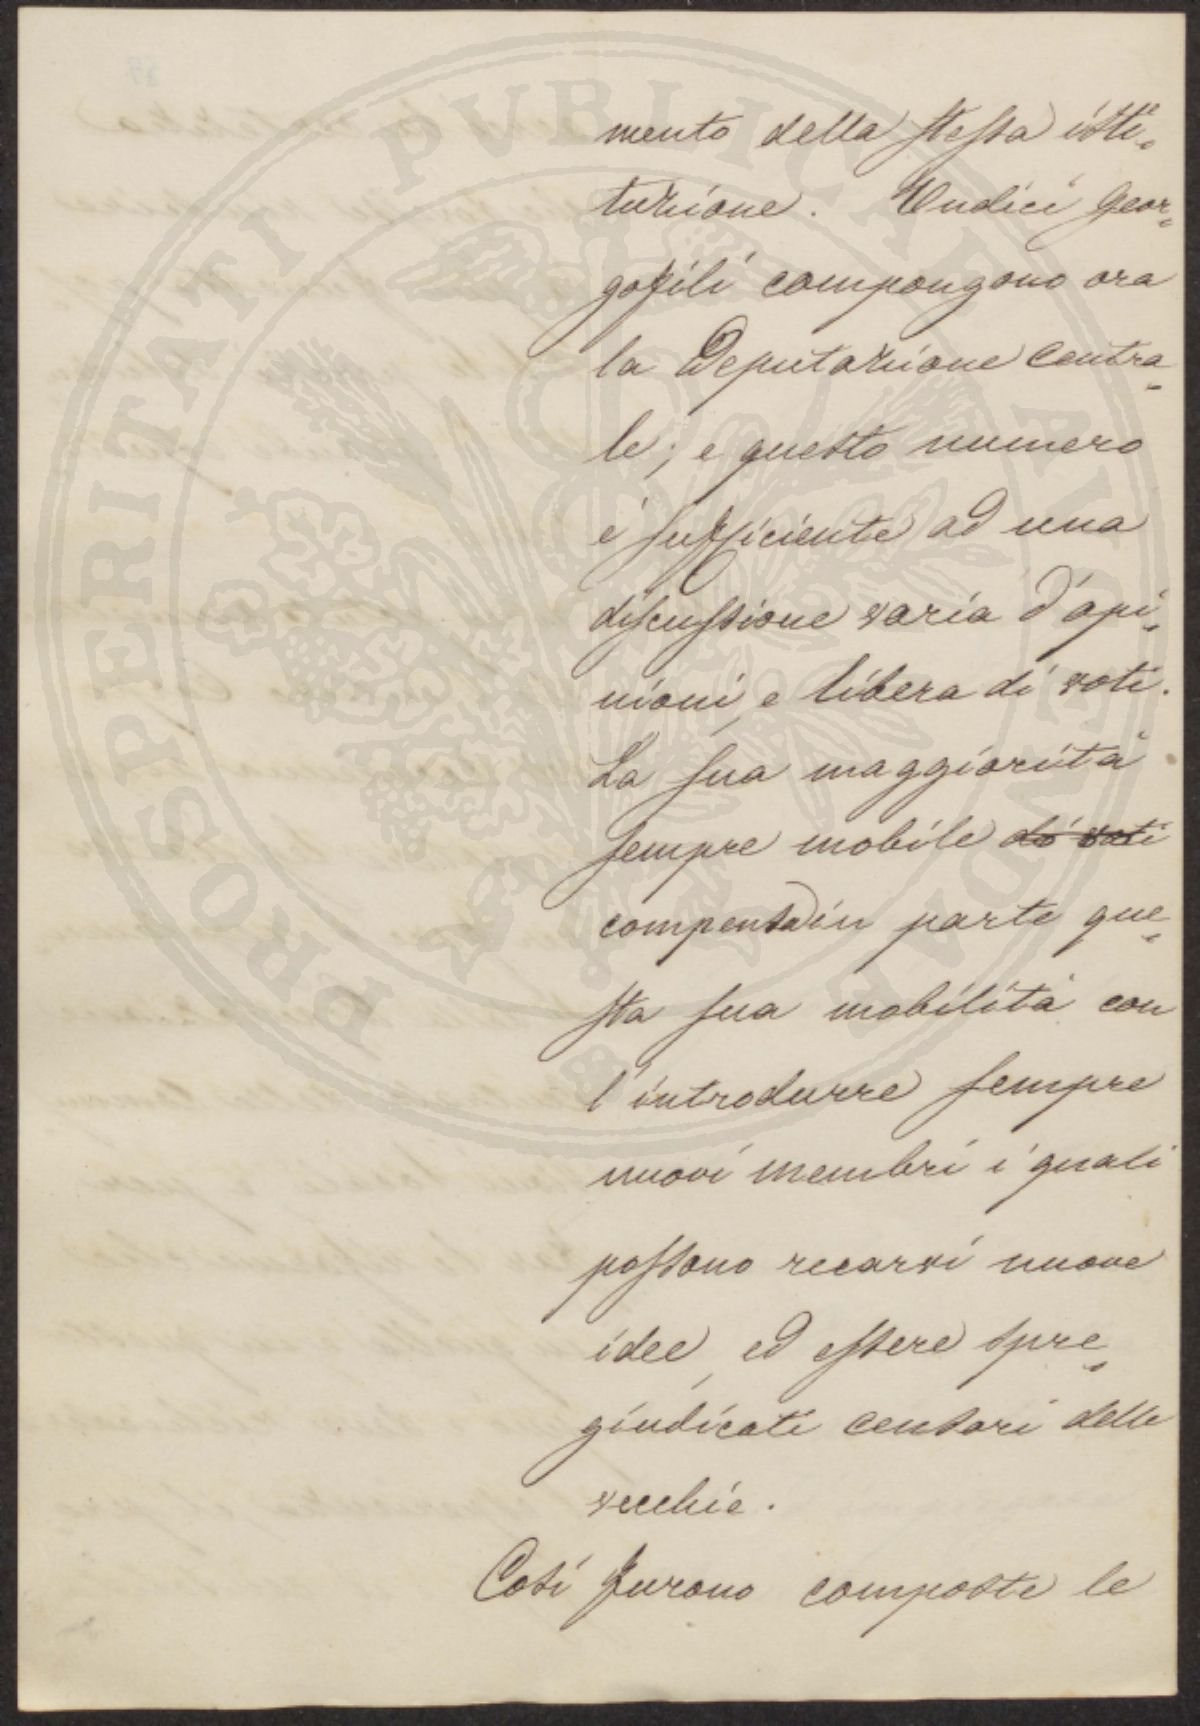 PROSPERITATI PUBLICAE AUGENDAE
mento della stessa isti=
tuzione. Undici Geor=
gofili compongono ora
la Deputazione Centra=
le; e questo numero
è sufficiente ad una
discussione varia d'opi=
nioni, e libera di voti.
La sua maggiorità
sempre mobile di voti
compensa in parte que=
sta sua mobilità con
l'introdurre sempre
nuovi membri i quali
possono recarvi nuove
idee, ed essere spre=
giudicati censori delle
vecchie.
Così furono composte le